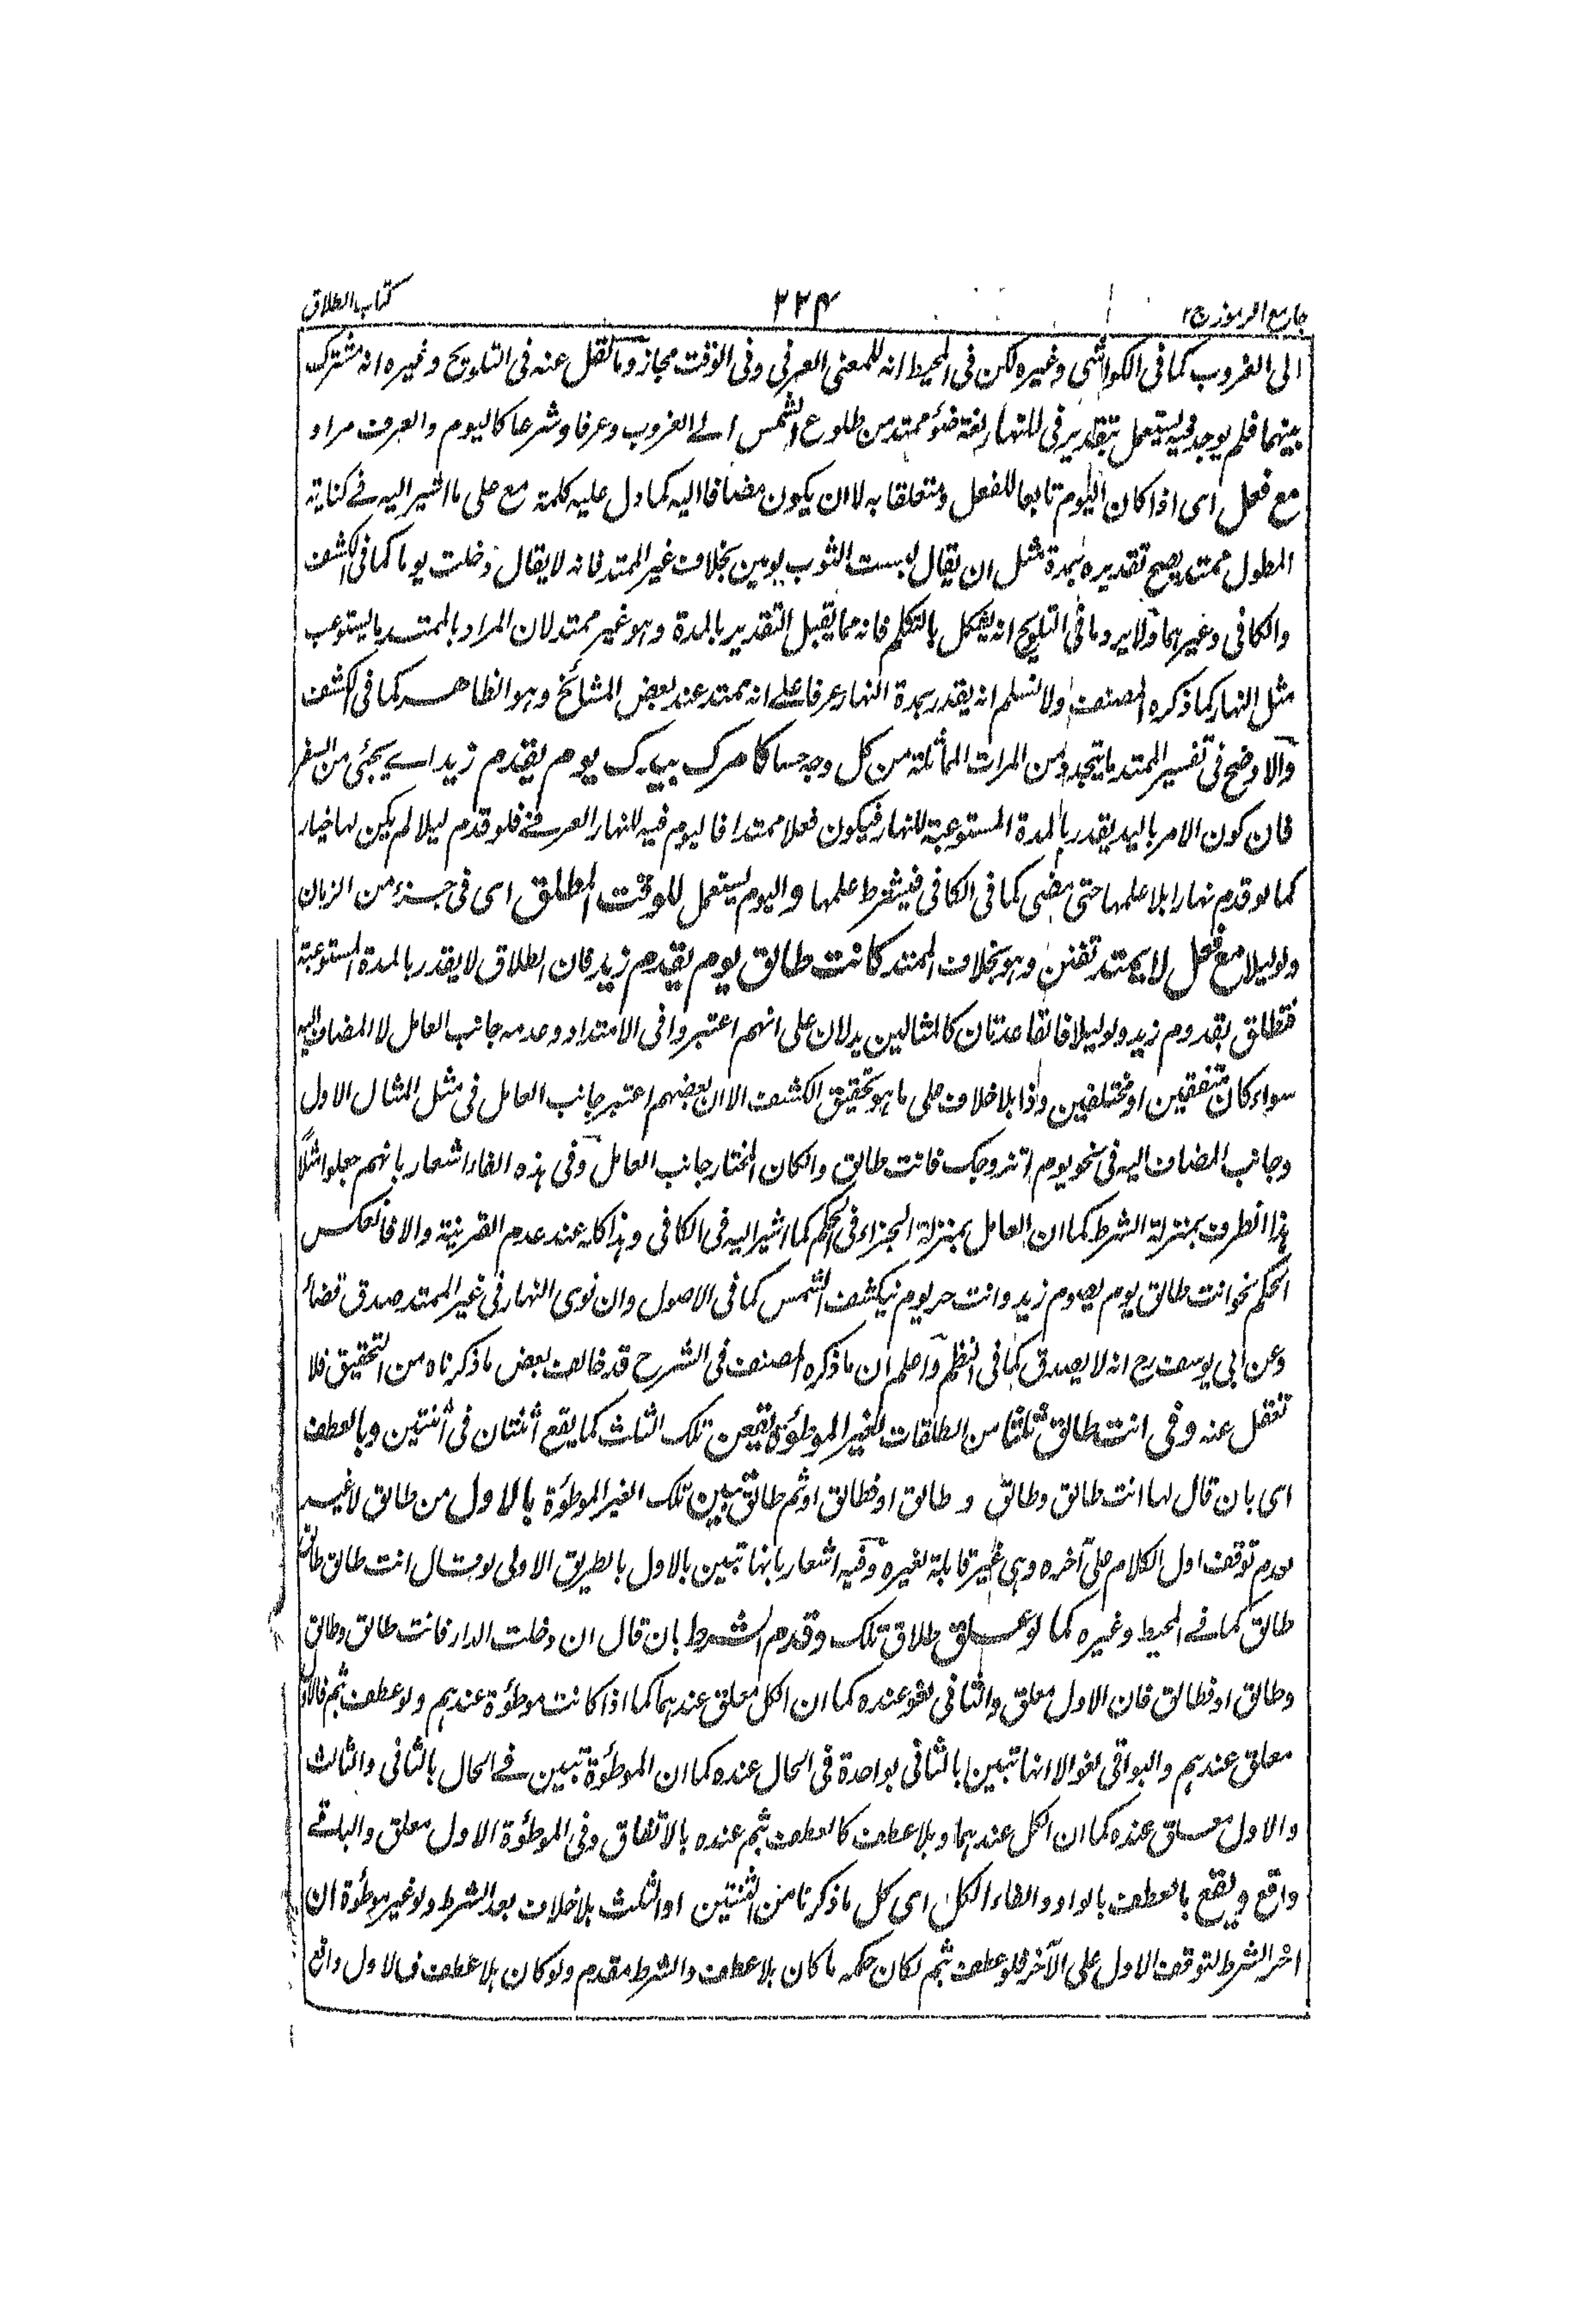 جامع الرموز ج٢
٢٢٤
كتاب الطلاق
الى الغروب كما فى الكواشى وغيره لكن فى المحيط انه للمعنى العرفى وفى الوقت مجاز وما نقل عنه فى التلويح وغيره انه مشترك
بينهما فلم يوجد فيه يستعمل بتقدير فى للنهار لغة ضوء ممتد من طلوع الشمس الے الغروب وعرفا وشرعا كاليوم والعرف مراد
مع فعل اى اذا كان اليوم تابعا للفعل ومتعلقا به لا ان يكون مضافا اليه كما دل عليه كلمة مع على ما اشير اليه فے كناية
المطول ممتد يصح تقديره بمدة مثل ان يقال لبست الثوب يومين بخلاف غير الممتد فانه لا يقال دخلت يوما كما فى الكشف
والكافى وغيرهما ولا يرد ما فى التلويح انه يشكل بالتكلم فانه مما يقبل التقدير بالمدة وهو غير ممتد لان المراد بالممتد ما يستوعب
مثل النهار كما ذكره المصنف ولا نسلم انه يقدر بمدة النهار عرفا علے انه ممتد عند بعض المشائخ وهو الظاهر كما فى الكشف
والاوضح فى تفسير الممتد ما يتجدد من المرات المماثلة من كل وجه حسا كامرك بيدك يوم يقدم زيد اے يجئ من السفر
فان كون الامر باليد يقدر بالمدة المستوعبة للنهار فيكون فعلا ممتدا فاليوم فيه للنهار العرفے فلو قدم ليلا لم يكن لها خيار
كما لو قدم نهارا بلا علمها حتى مضى كما فى الكافى فيشترط علمها واليوم يستعمل للوقت المطلق اى فى جزء من الزمان
ولو ليلا مع فعل لا يمتد تفنن وهو بخلاف الممتد كانت طالق يوم يقدم زيد فان الطلاق لا يقدر بالمدة المستوعبة
فتطلق بقدوم زيد ولو ليلا فالقاعدتان كالمثالين يدلان على انهم اعتبروا فى الامتداد وعدمه جانب العامل لا المضاف اليه
سواء كان متفقين او مختلفين وذا بلا خلاف على ما هو تحقيق الكشف الا ان بعضهم اعتبر جانب العامل فى مثل المثال الاول
وجانب المضاف اليه فى نحو يوم اتزوجك فانت طالق والكان المختار جانب العامل وفى هذه الفاء اشعار بانهم جعلوا مثل
هذا الظرف بمنزلة الشرط كما ان العامل بمنزلة الجزاء فى الحكم كما اشير اليه فى الكافى وهذا كله عند عدم القرينة والا فانعكس
الحكم نحو انت طالق يوم يصوم زيد وانت حر يوم ينكشف الشمس كما فى الاصول وان نوى النهار فى غير الممتد صدق قضاء
وعن ابى يوسف رح انه لا يصدق كما فى النظم واعلم ان ما ذكره المصنف فى الشرح قد خالف بعض ما ذكرناه من التحقيق فلا
تغفل عنه وفى انت طالق ثلثا من الطلقات للغير الموطوءة يقعن تلك الثلث كما يقع اثنتان فى اثنتين وبالعطف
اى بان قال لها انت طالق وطالق و طالق او فطالق او ثم طالق تبين تلك الغير الموطوءة بالاول من طالق لا غير
لعدم توقف اول الكلام على آخره وهى غير قابلة لغيره وفيه اشعار بانها تبين بالاول بالطريق الاولى لو قال انت طالق طالق
طالق كما فے المحيط وغيره كما لو علق طلاق تلك وقدم الشرط بان قال ان دخلت الدار فانت طالق وطالق
وطالق او فطالق فان الاول معلق والثانى لغو عنده كما ان الكل معلق عندهما كما اذا كانت موطوءة عندهم ولو عطف بثم فالاول
معلق عندهم والبواقى لغو الا انها تبين بالثانى بواحدة فى الحال عنده كما ان الموطوءة تبين فے الحال بالثانى والثالث
والاول معلق عنده كما ان الكل عندهما وبلا عطف كالعطف بثم عنده بالاتفاق وفى الموطوءة الاول معلق والباقے
واقع ويقع بالعطف بالواو والفاء الكل اى كل ما ذكرنا من الثنتين او الثلث بلا خلاف بعد الشرط ولو غير موطوءة ان
اخر الشرط لتوقف الاول على الآخر فلو عطف بثم لكان حكمه ما كان بلا عطف والشرط مقدم ولو كان بلا عطف فالاول واقع